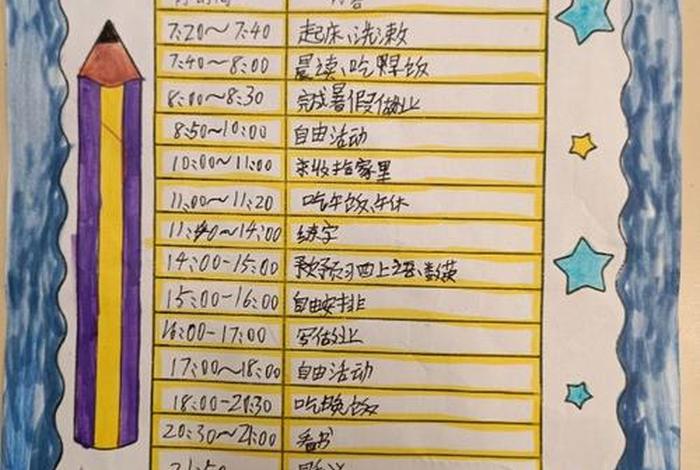 7:20～7:40 起床、洗漱
7:40～8:00 晨读、吃早饭
8:00～8:30 完成暑假作业
8:50～10:00 自由活动
10:00～11:00 来收拾家里
11:00～11:20 吃午饭、午休
11:40～14:00 练字
14:00-15:00 预习四上语、数、英
15:00-16:00 自由安排
16:00-17:00 写作业
17:00～18:00 自由活动
18:00-20:30 吃晚饭
20:30～21:00 看书